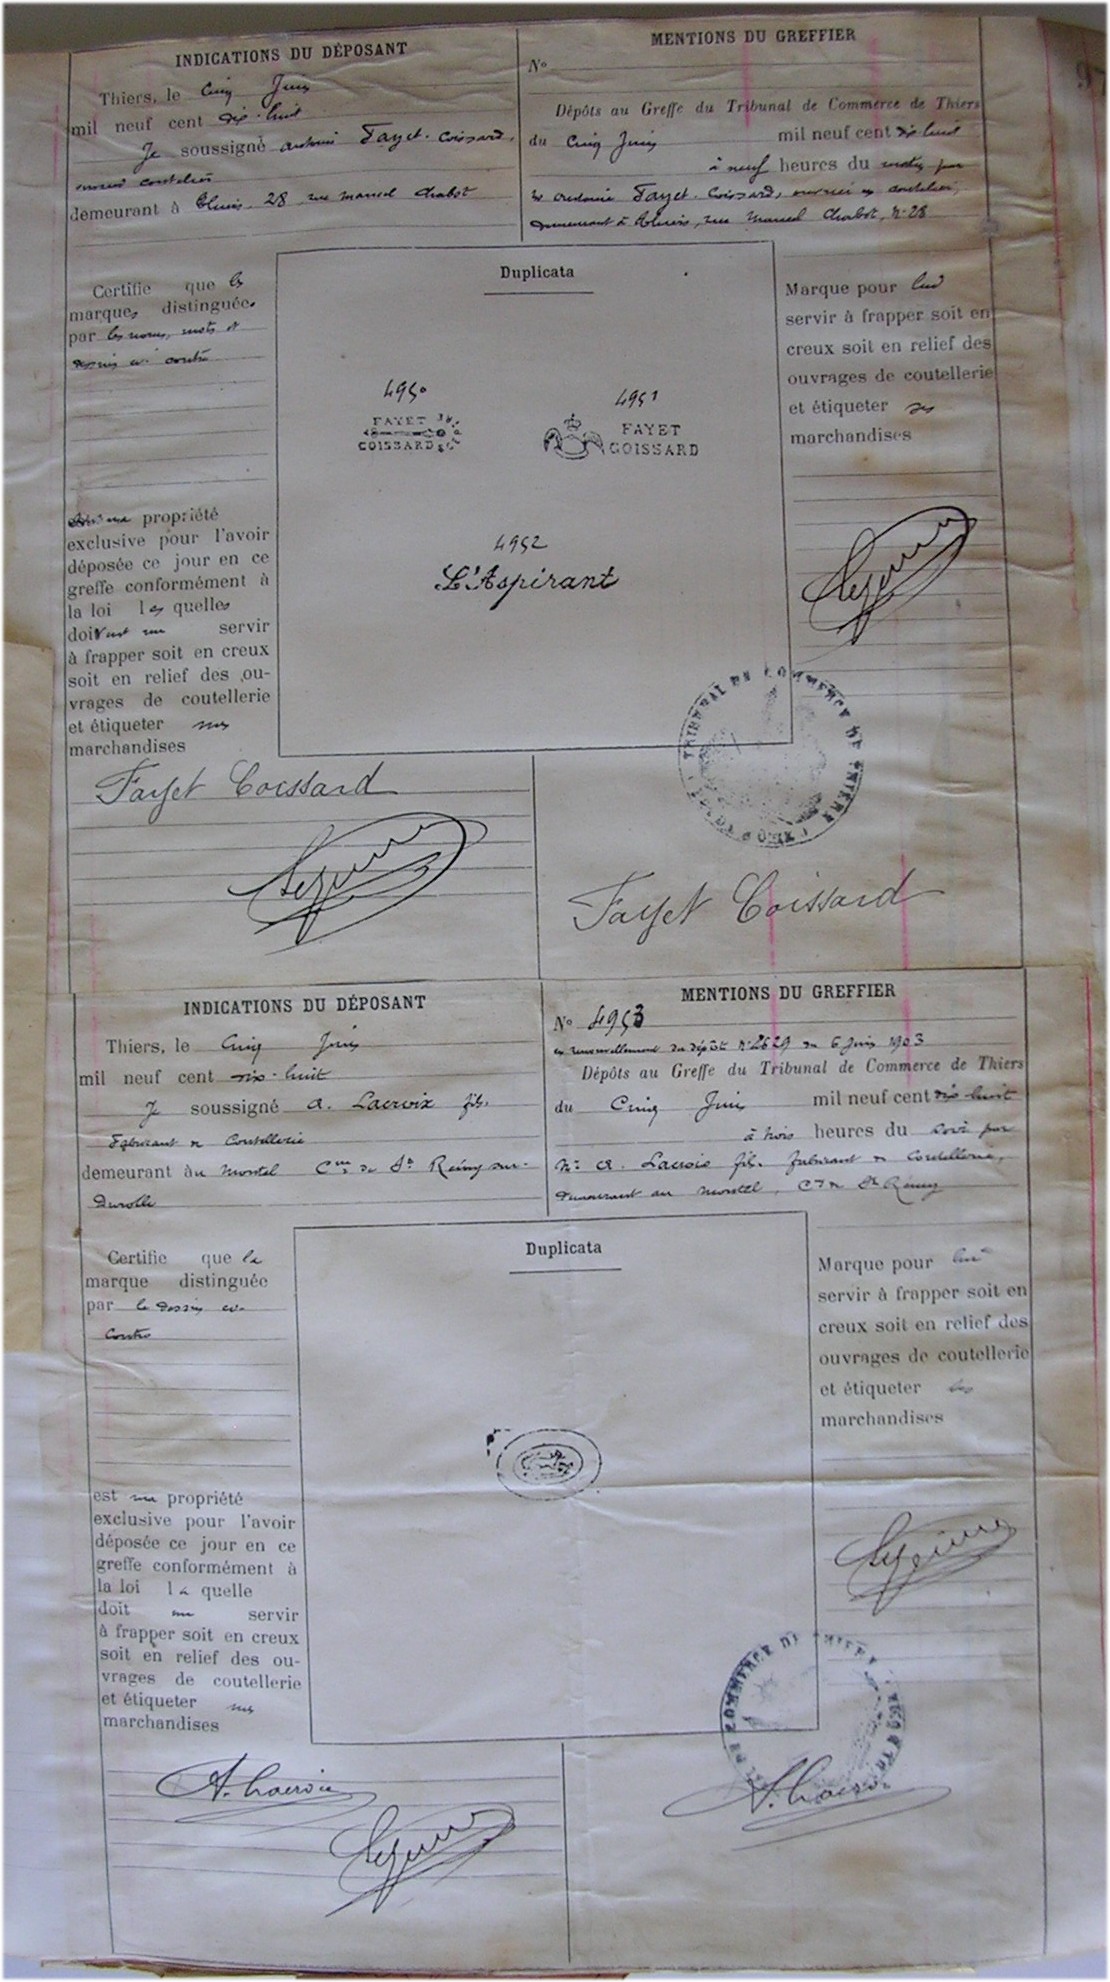 INDICATIONS DU DÉPOSANT
Thiers, le Cinq Juin
mil neuf cent dix-huit
Je soussigné Antoine Fayet-Coissard,
ouvrier coutelier
demeurant à Thiers, 28, rue Manuel Chabot
MENTIONS DU GREFFIER
No
Dépôts au Greffe du Tribunal de Commerce de Thiers
du Cinq Juin mil neuf cent dix-huit
à neuf heures du matin par
Mr Antoine Fayet-Coissard, ouvrier coutelier,
demeurant à Thiers, rue Manuel Chabot, No 28
Certifie que les
marques distinguées
par les noms, mots et
dessins ci-contre
Duplicata
4950
FAYET
COISSARD
4951
FAYET
COISSARD
4952
L'Aspirant
Marque pour lui
servir à frapper soit en
creux soit en relief des
ouvrages de coutellerie
et étiqueter ses
marchandises
ma propriété
exclusive pour l'avoir
déposée ce jour en ce
greffe conformément à
la loi les quelles
doivent me servir
à frapper soit en creux
soit en relief des ou-
vrages de coutellerie
et étiqueter mes
marchandises
TRIBUNAL DE COMMERCE DE THIERS
Fayet Coissard
Fayet Coissard
INDICATIONS DU DÉPOSANT
Thiers, le Cinq Juin
mil neuf cent dix-huit
Je soussigné A. Lacroix fils,
Fabricant de Coutellerie
demeurant au Montel Cne de St Rémy-sur-
Durolle
MENTIONS DU GREFFIER
No 4953
en renouvellement du dépôt No 2629 du 6 Juin 1903
Dépôts au Greffe du Tribunal de Commerce de Thiers
du Cinq Juin mil neuf cent dix-huit
à trois heures du soir par
Mr A. Lacroix fils, fabricant de Coutellerie,
demeurant au Montel, Cne de St Rémy
Certifie que la
marque distinguée
par le dessin ci-
contre
Duplicata
Marque pour lui
servir à frapper soit en
creux soit en relief des
ouvrages de coutellerie
et étiqueter ses
marchandises
est ma propriété
exclusive pour l'avoir
déposée ce jour en ce
greffe conformément à
la loi la quelle
doit me servir
à frapper soit en creux
soit en relief des ou-
vrages de coutellerie
et étiqueter mes
marchandises
DE COMMERCE DE THIERS
A. Lacroix
A. Lacroix